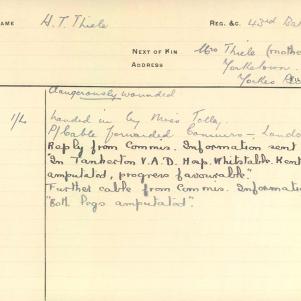 NAME H. T. Thiele REG. &C. 43rd Bat
NEXT OF KIN Mrs Thiele (mother
ADDRESS Yorketown
Yorkes
dangerously wounded
handed in by Miss Tolley
P/Cable forwarded Commrs – Londo
Reply from Commis. Information sent
"In Tankerton V.A.D. Hosp. Whitstable. Kent
amputated, progress favourable".
Further cable from Commis. Informatio
"Both legs amputated".